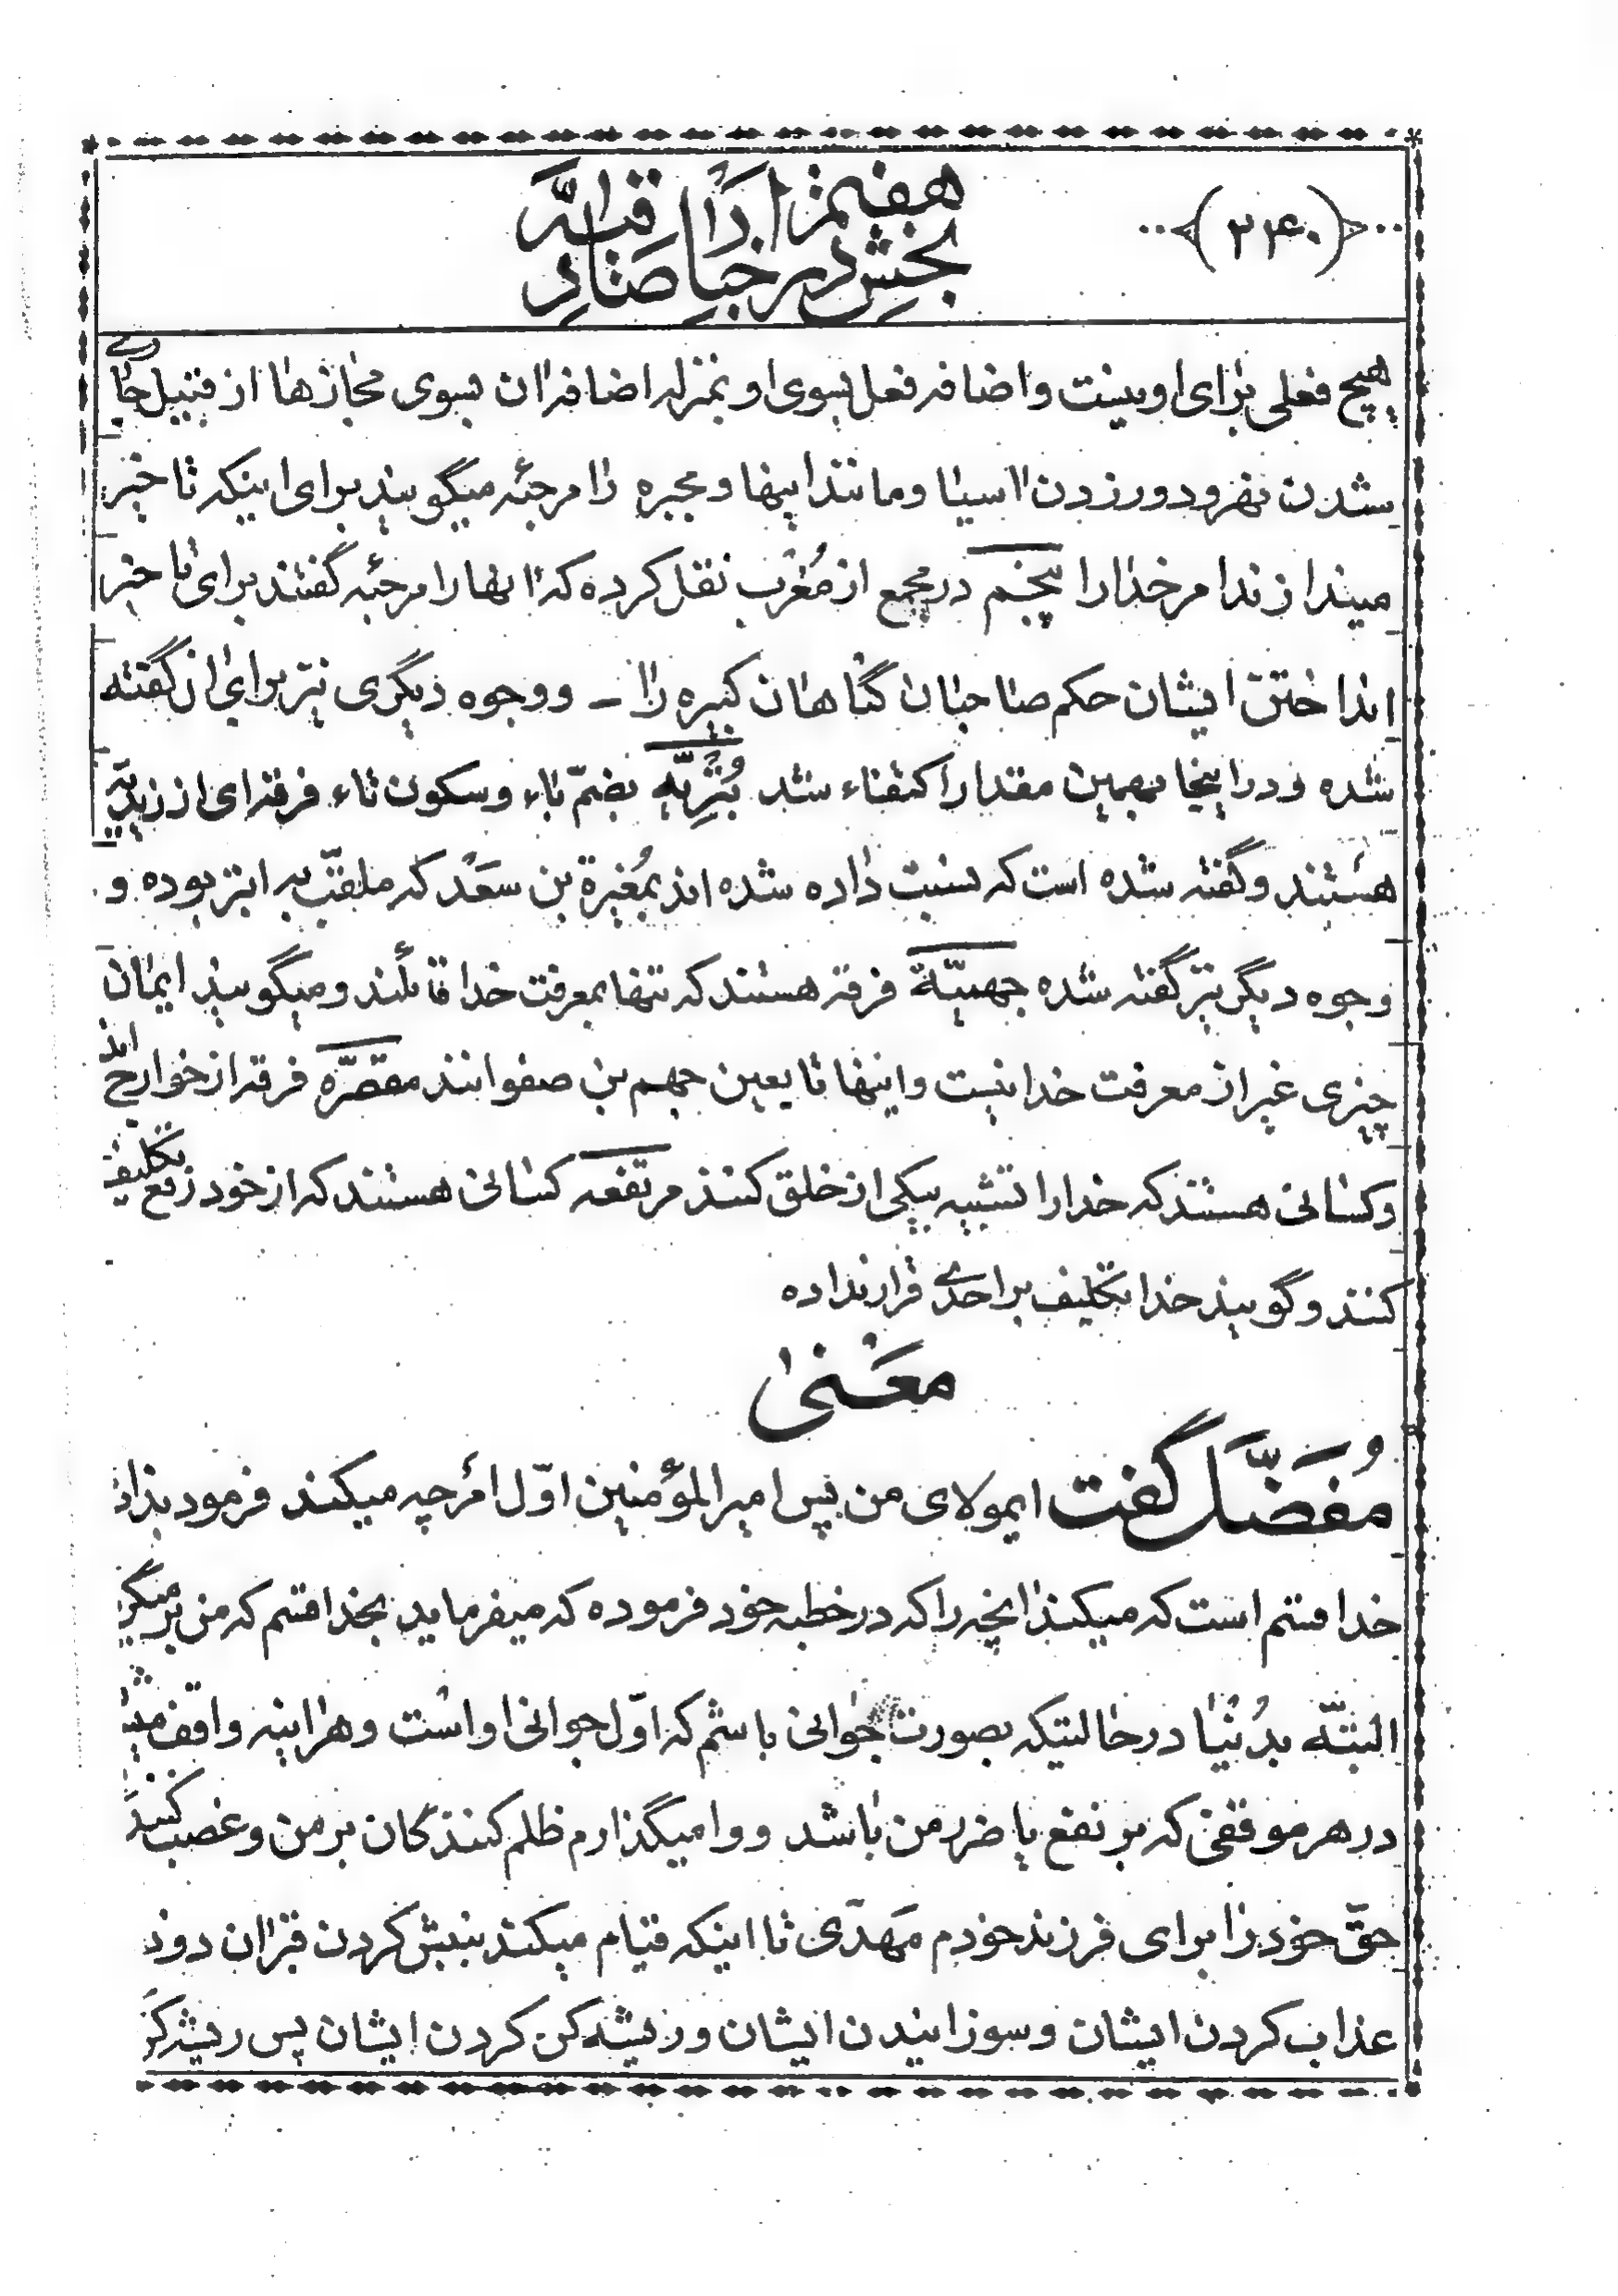 ﴿۲۴۰﴾
بخش هفتم در اخبار صادقیه
هیچ فعلی برای او نیست و اضافه فعل بسوی او بمنزله اضافه ان بسوی مجازها از قبیل جاری
شدن نهر و دور زدن اسیا و مانند اینها و مجبره را مرجئه میگویند برای اینکه تاخیر
میندازند امر خدا را پنجم در مجمع از مُغرب نقل کرده که انها را مرجئه گفتند برای تاخیر
انداختن ایشان حکم صاحبان گناهان کبیره را - و وجوه دیگری نیز برای ان گفته
شده و در اینجا بهمین مقدار اکتفاء شد بُتْرِیَّه بضمّ باء و سکون تاء فرقه‌ای از زیدیّه
هستند و گفته شده است که نسبت داده شده اند بمُغیرة بن سَعْد که ملقّب به ابتر بوده و
وجوه دیگر نیز گفته شده جهمیّة فرقه هستند که تنها بمعرفت خدا قائلند و میگویند ایمان
چیزی غیر از معرفت خدا نیست و اینها تابعین جهم بن صفوانند مقصّره فرقه از خوارج اند
و کسانی هستند که خدا را تشبیه بیکی از خلق کنند مرتفعه کسانی هستند که از خود رفع تکلیف
کنند و گویند خدا تکلیف بر احدی قرار نداده
معنی
مُفَضَّل گفت ایمولای من پس امیر المؤمنین اوّل امر چه میکند فرمود بذات
خدا قسم است که میکند انچه را که در خطبه خود فرموده که میفرماید بخدا قسم که من بر میگردم
البتّه بدُنیا در حالتیکه بصورت جوانی باشم که اوّل جوانی او است و هر اینه واقف میشوم
در هر موقفی که بر نفع یا ضرر من باشد و وا میگذارم ظلم کنندگان بر من و غصب کنندگان
حقّ خود را برای فرزند خودم مَهدی تا اینکه قیام میکند بنبش کردن قبر ان دو و
عذاب کردن ایشان و سوزانیدن ایشان و ریشه کن کردن ایشان پس ریشه کن